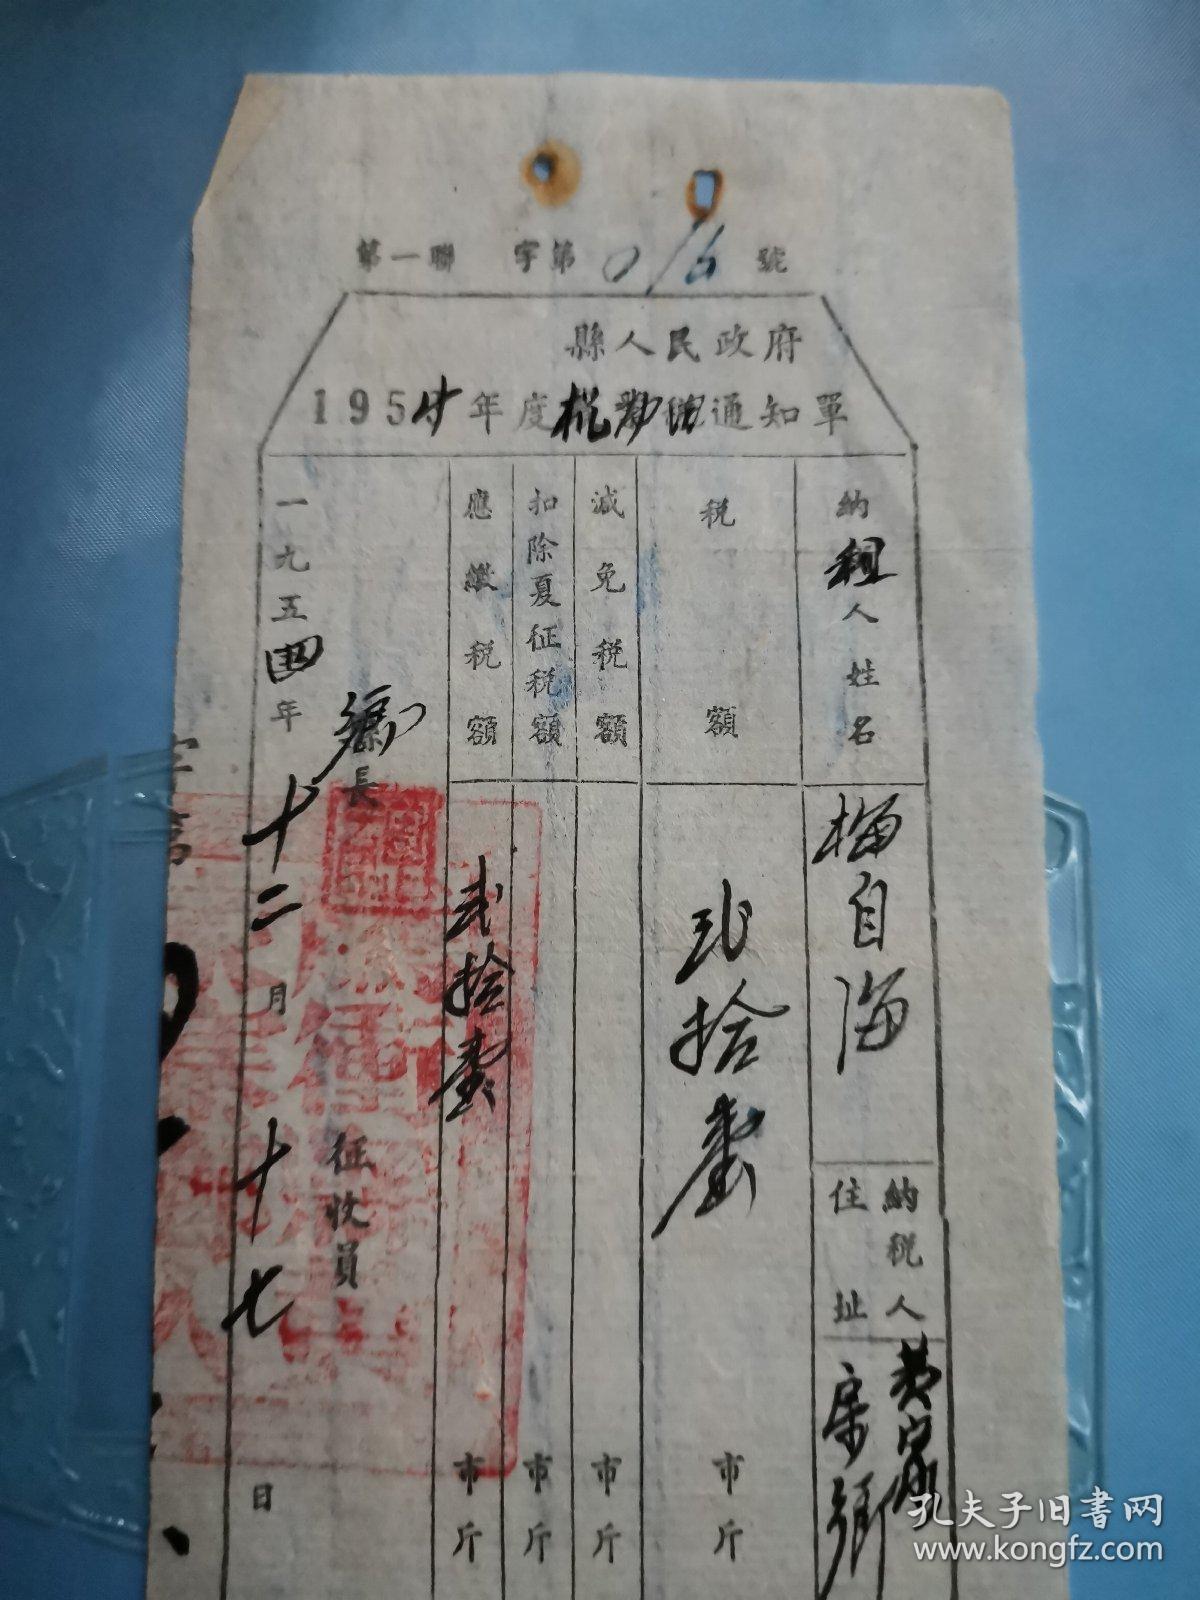 第一聯 字第 016 號
縣人民政府
1954年度 通知單
納租人姓名
梅自海
納税人
住址
税額
貳拾壹
市斤
減免税額
市斤
扣除夏征税額
市斤
應繳税額
貳拾壹
市斤
長
征收員
一九五四年十二月十七日
孔夫子旧书网
www.kongfz.com